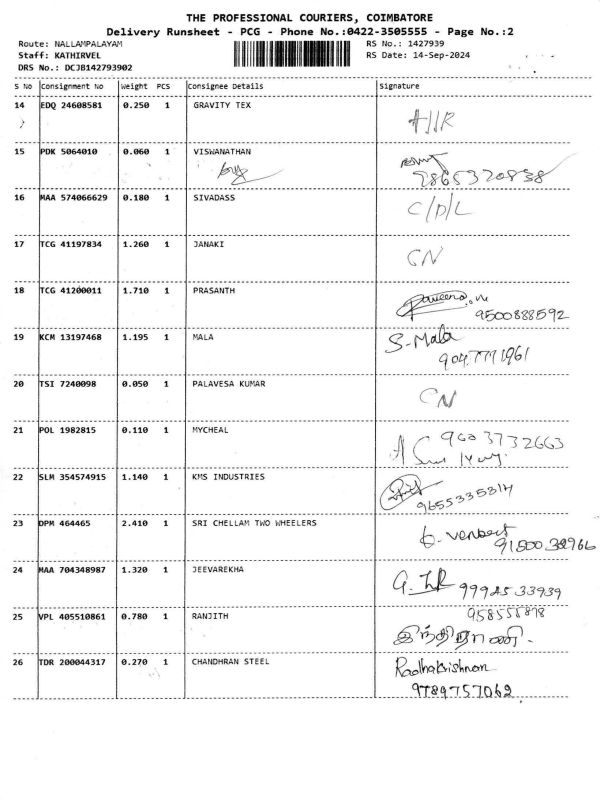 THE PROFESSIONAL COURIERS, COIMBATORE
Delivery Runsheet - PCG - Phone No.:0422-3505555 - Page No.:2
Route: NALLAMPALAYAM RS No.: 1427939
Staff: KATHIRVEL RS Date: 14-Sep-2024
DRS No.: DCJB142793902
S No Consignment No Weight PCS Consignee Details Signature
14 EDQ 24608581 0.250 1 GRAVITY TEX
15 PDK 5064010 0.060 1 VISWANATHAN
16 MAA 574066629 0.180 1 SIVADASS
C/D/L
17 TCG 41197834 1.260 1 JANAKI
CN
18 TCG 41200011 1.710 1 PRASANTH
9500888592
19 KCM 13197468 1.195 1 MALA
S-Mala
9047771961
20 TSI 7240098 0.050 1 PALAVESA KUMAR
CN
21 POL 1982815 0.110 1 MYCHEAL
9603732663
22 SLM 354574915 1.140 1 KMS INDUSTRIES
9655335314
23 DPM 464465 2.410 1 SRI CHELLAM TWO WHEELERS
24 MAA 704348987 1.320 1 JEEVAREKHA
9994533939
25 VPL 405510861 0.780 1 RANJITH
இந்திராணி.
26 TDR 200044317 0.270 1 CHANDHRAN STEEL
Radhakrishnan
9789757062